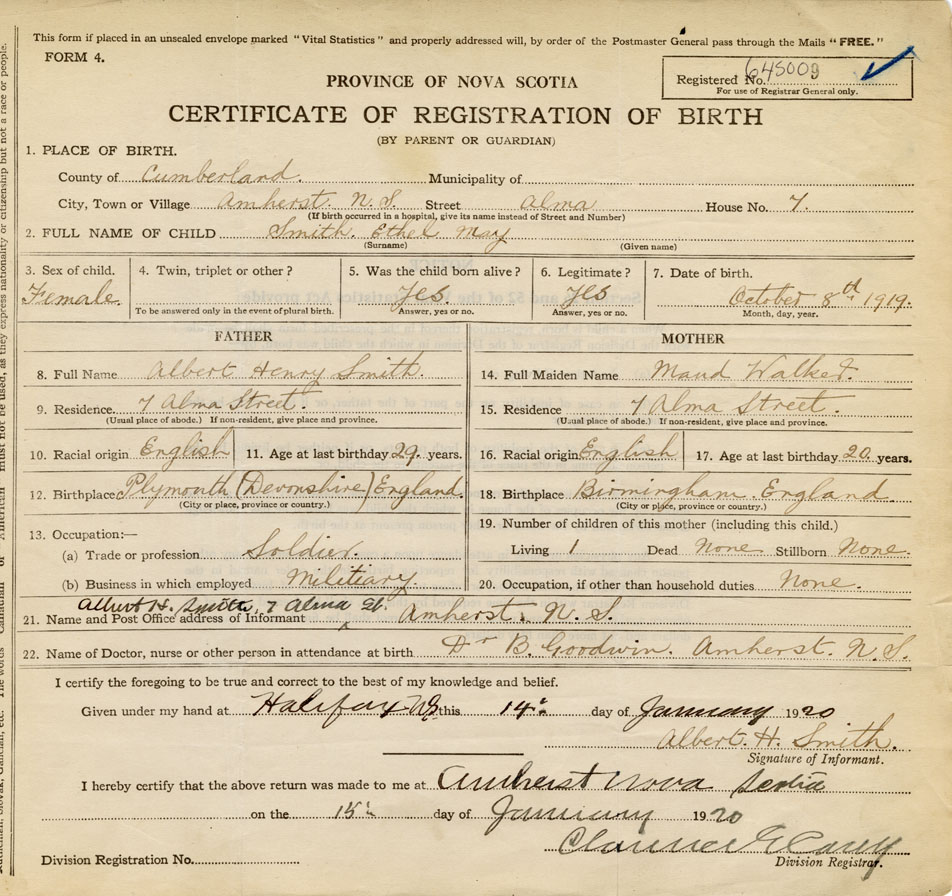 This form if placed in an unsealed envelope marked "Vital Statistics" and properly addressed will, by order of the Postmaster General pass through the Mails "FREE."
FORM 4.
Registered No. 645009
For use of Registrar General only.
PROVINCE OF NOVA SCOTIA
CERTIFICATE OF REGISTRATION OF BIRTH
(BY PARENT OR GUARDIAN)
1. PLACE OF BIRTH.
County of Cumberland. Municipality of
City, Town or Village Amherst. N. S Street Alma House No. 7.
(If birth occurred in a hospital, give its name instead of Street and Number)
2. FULL NAME OF CHILD Smith. Ethel May
(Surname) (Given name)
3. Sex of child. 4. Twin, triplet or other? 5. Was the child born alive? 6. Legitimate? 7. Date of birth.
Female. yes. yes October 8th 1919.
To be answered only in the event of plural birth. Answer, yes or no. Answer, yes or no. Month, day, year.
FATHER MOTHER
8. Full Name Albert Henry Smith. 14. Full Maiden Name Maud Walker.
9. Residence. 7 Alma Street. 15. Residence 7 Alma Street.
(Usual place of abode.) If non-resident, give place and province. (Usual place of abode.) If non-resident, give place and province.
10. Racial origin English 11. Age at last birthday 29. years. 16. Racial origin English 17. Age at last birthday 20 years.
12. Birthplace Plymouth (Devonshire) England. 18. Birthplace Birmingham. England
(City or place, province or country.) (City or place, province or country.)
13. Occupation:— 19. Number of children of this mother (including this child.)
(a) Trade or profession Soldier. Living 1 Dead None Stillborn None.
(b) Business in which employed Militiary 20. Occupation, if other than household duties None.
Albert H. Smith, 7 Alma St.
21. Name and Post Office address of Informant Amherst. N. S.
22. Name of Doctor, nurse or other person in attendance at birth Dr B. Goodwin. Amherst. N. S.
I certify the foregoing to be true and correct to the best of my knowledge and belief.
Given under my hand at Halifax NS this 14th day of January 1920
Albert. H. Smith.
Signature of Informant.
I hereby certify that the above return was made to me at Amherst Nova Scotia
on the 15th day of January 1920
Clarence
Division Registration No. Division Registrar.
must not be used, as they express nationality or citizenship but not a race or people.
The words Canadian or American